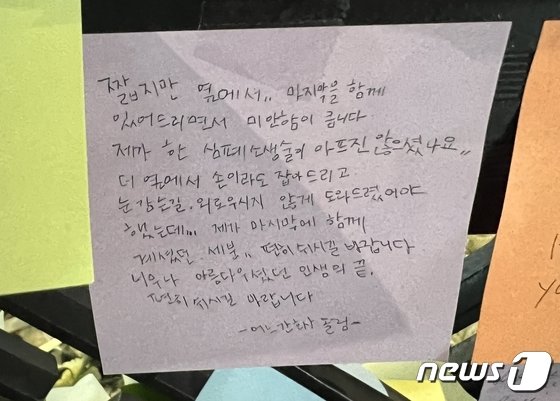 짧지만 옆에서,, 마지막을 함께
있어드리면서 미안함이 큽니다
제가 한 심폐소생술이 아프진 않으셨나요,,
더 옆에서 손이라도 잡아드리고
눈 감는길. 외로우시지 않게 도와드렸어야
했는데... 제가 마지막에 함께
계셨던. 세분,, 편히 쉬시길 바랍니다
너무나 아름다우셨던 인생의 끝.
편히 쉬시길 바랍니다
-어느 간호사 올림-
news1